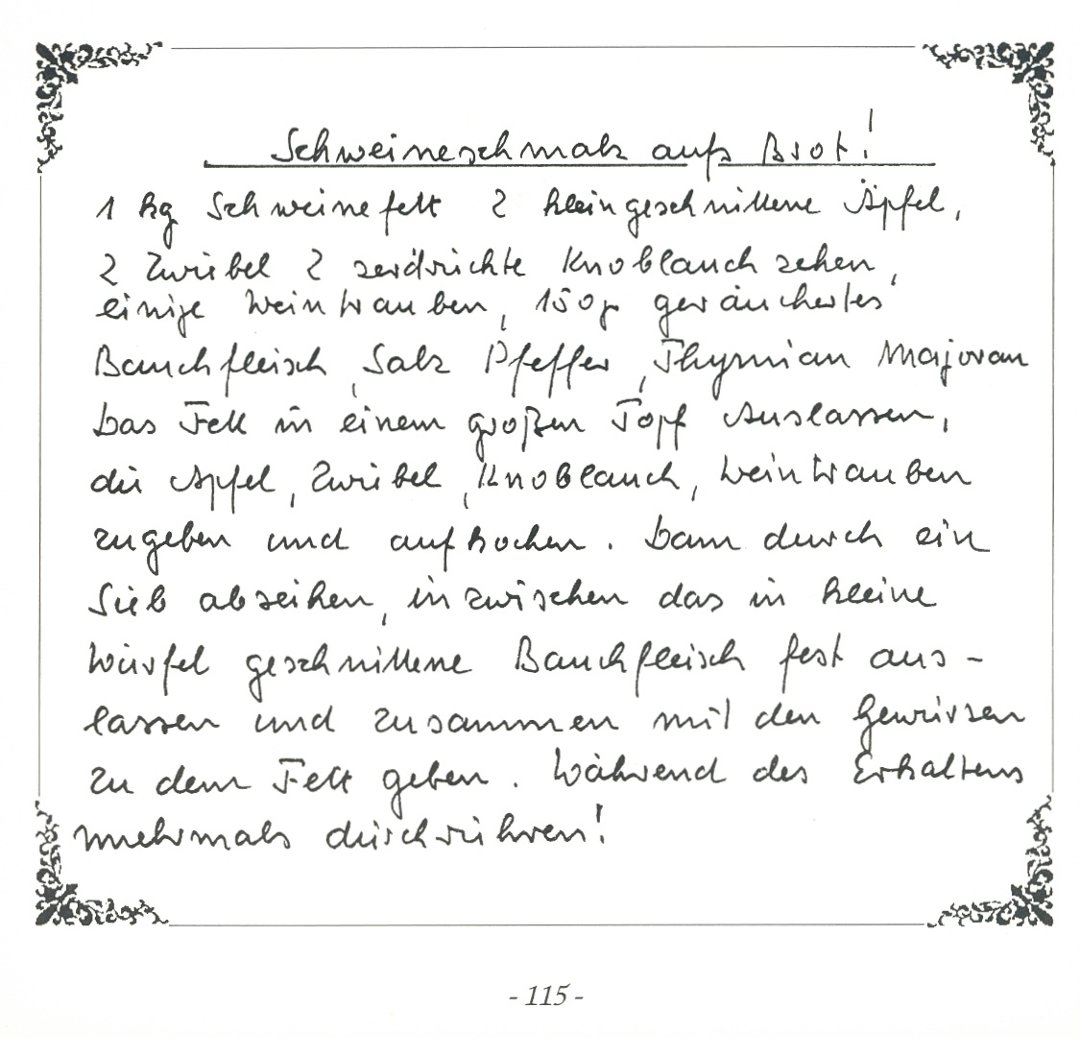 Schweineschmalz aufs Brot!
1 kg Schweinefett 2 kleingeschnittene Äpfel,
2 Zwiebel 2 zerdrückte Knoblauchzehen,
einige Weintrauben, 150g geräuchertes
Bauchfleisch, Salz Pfeffer, Thymian Majoran
Das Fett in einem großen Topf Auslassen,
die Apfel, Zwiebel, Knoblauch, Weintrauben
zugeben und aufkochen. Dann durch ein
Sieb abseihen, inzwischen das in kleine
Würfel geschnittene Bauchfleisch fest aus-
lassen und zusammen mit den Gewürzen
zu dem Fett geben. Während des Erkaltens
mehrmals durchrühren!
- 115 -